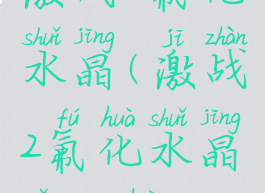 shuǐ jīng jī zhàn
水晶(激战
fú huà shuǐ jīng
2氟化水晶